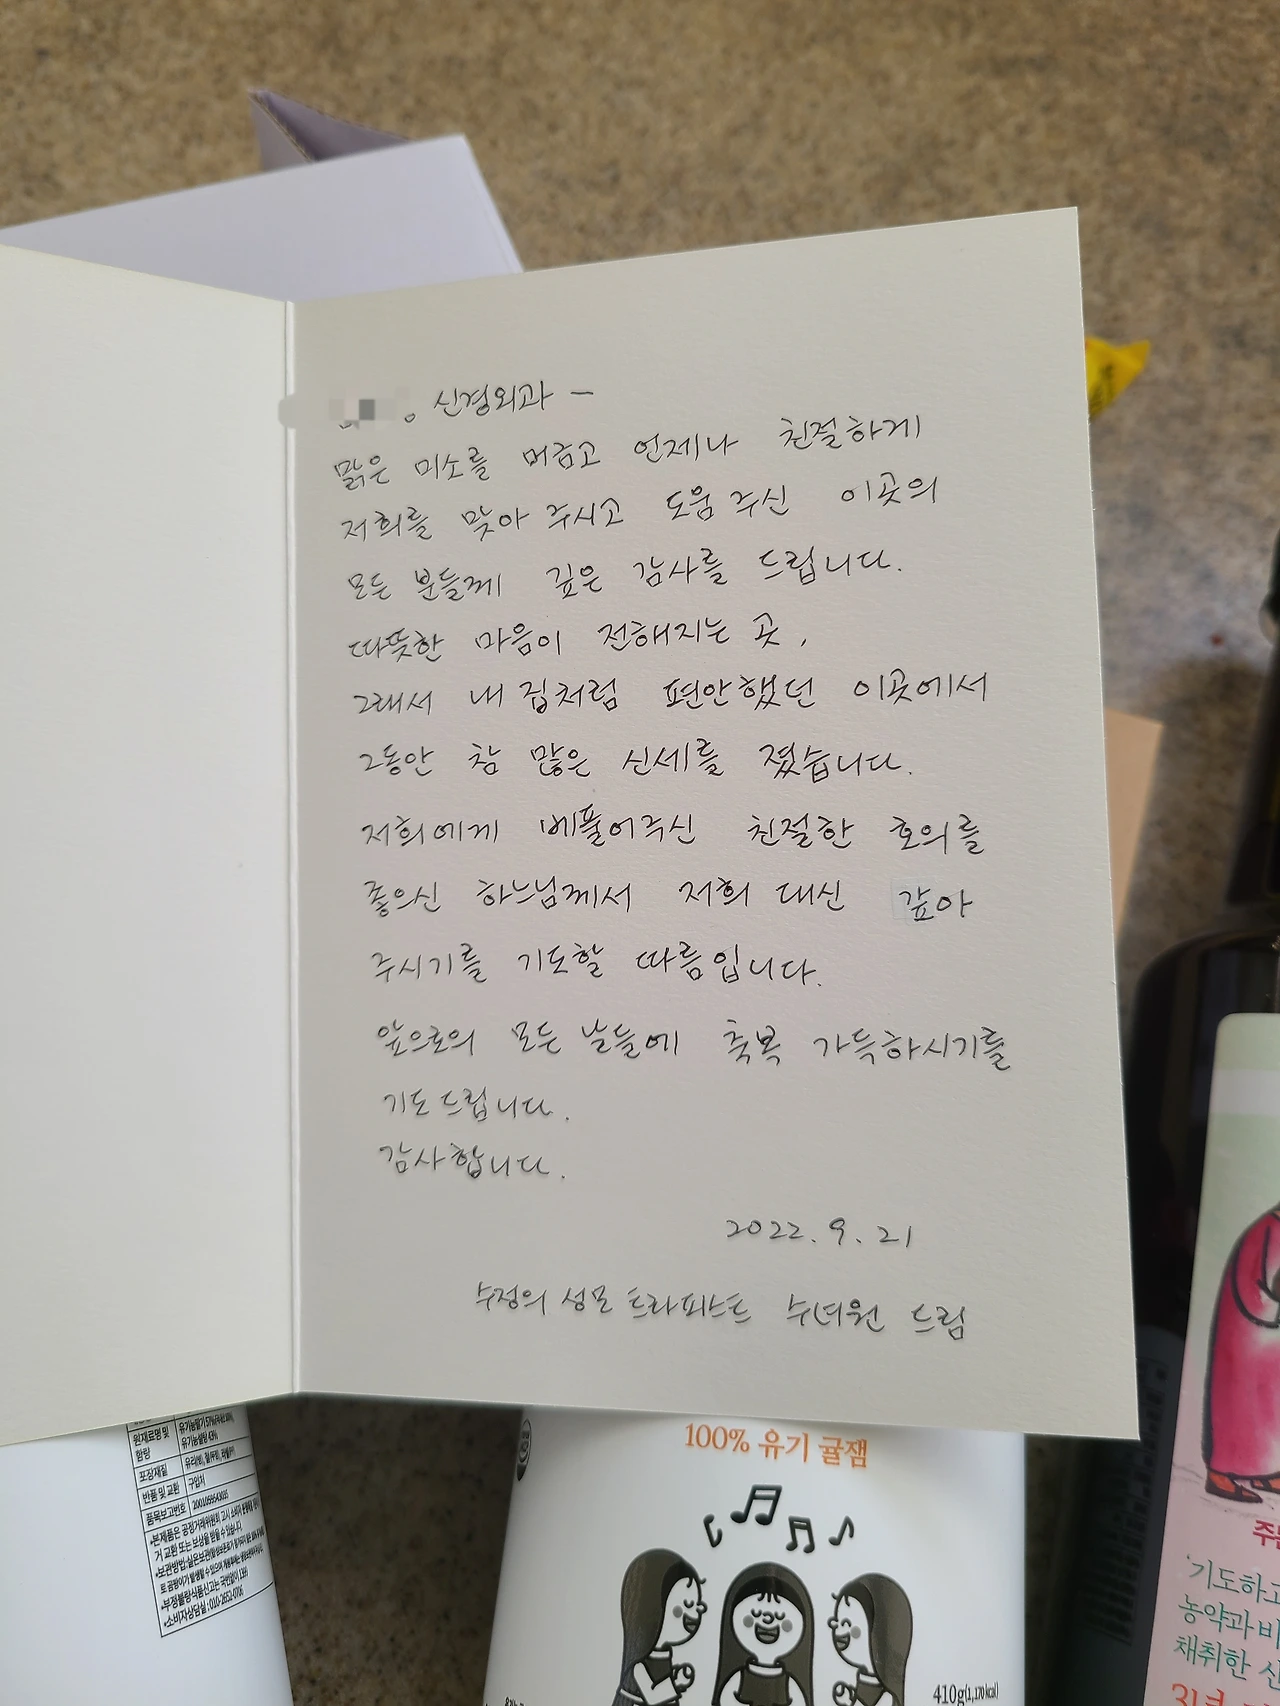 신경외과 -
맑은 미소를 머금고 언제나 친절하게
저희를 맞아 주시고 도움 주신 이곳의
모든 분들께 깊은 감사를 드립니다.
따뜻한 마음이 전해지는 곳,
그래서 내 집처럼 편안했던 이곳에서
그동안 참 많은 신세를 졌습니다.
저희에게 베풀어주신 친절한 호의를
좋으신 하느님께서 저희 대신 갚아
주시기를 기도할 따름입니다.
앞으로의 모든 날들에 축복 가득하시기를
기도 드립니다.
감사합니다.
2022. 9. 21
수정의 성모 트라피스트 수녀원 드림
원재료명 및 함량
포장재질
반품 및 교환 구입처
품목보고번호
100% 유기 귤잼
410g(1,170kcal)
'기도하고
농약과 비
채취한